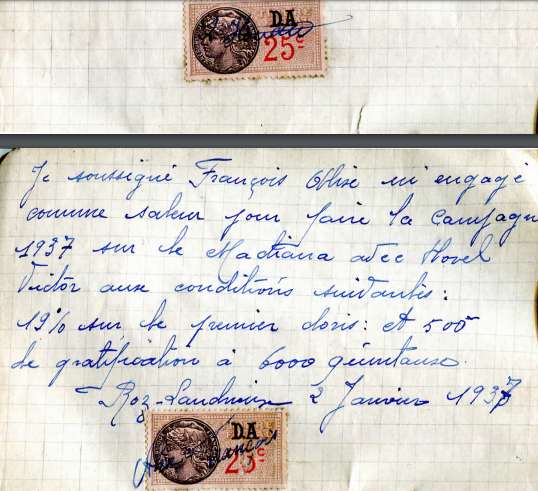 DA
25c
Je soussigné François Olive m'engage
comme saleur pour faire la Campagn
1937 sur le Madiana avec Hovel
Victor aux conditions suivantes:
19% sur le premier doris: et 500
de gratification à 6000 quintaux.
Roz-Landrieux 2 Janvier 1937
DA
25c
François